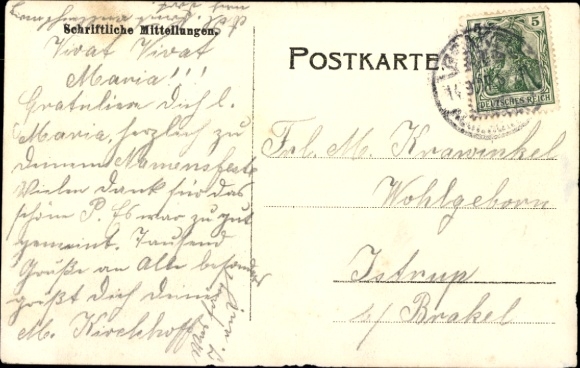 Schriftliche Mitteilungen.
Vivat Vivat
Maria!!!
Gratuliere Dich l.
Maria, herzlich zu
Deinem Namensfeste
Vielen Dank für das
schöne P. Es war zu gut
gemeint. Tausend
Grüße an Alle besonders
grüßt Dich deine
M. Kirchhoff
POSTKARTE
5
DEUTSCHES REICH
Frl. M. Krawinkel
Wohlgeborn
Istrup
b/ Brakel